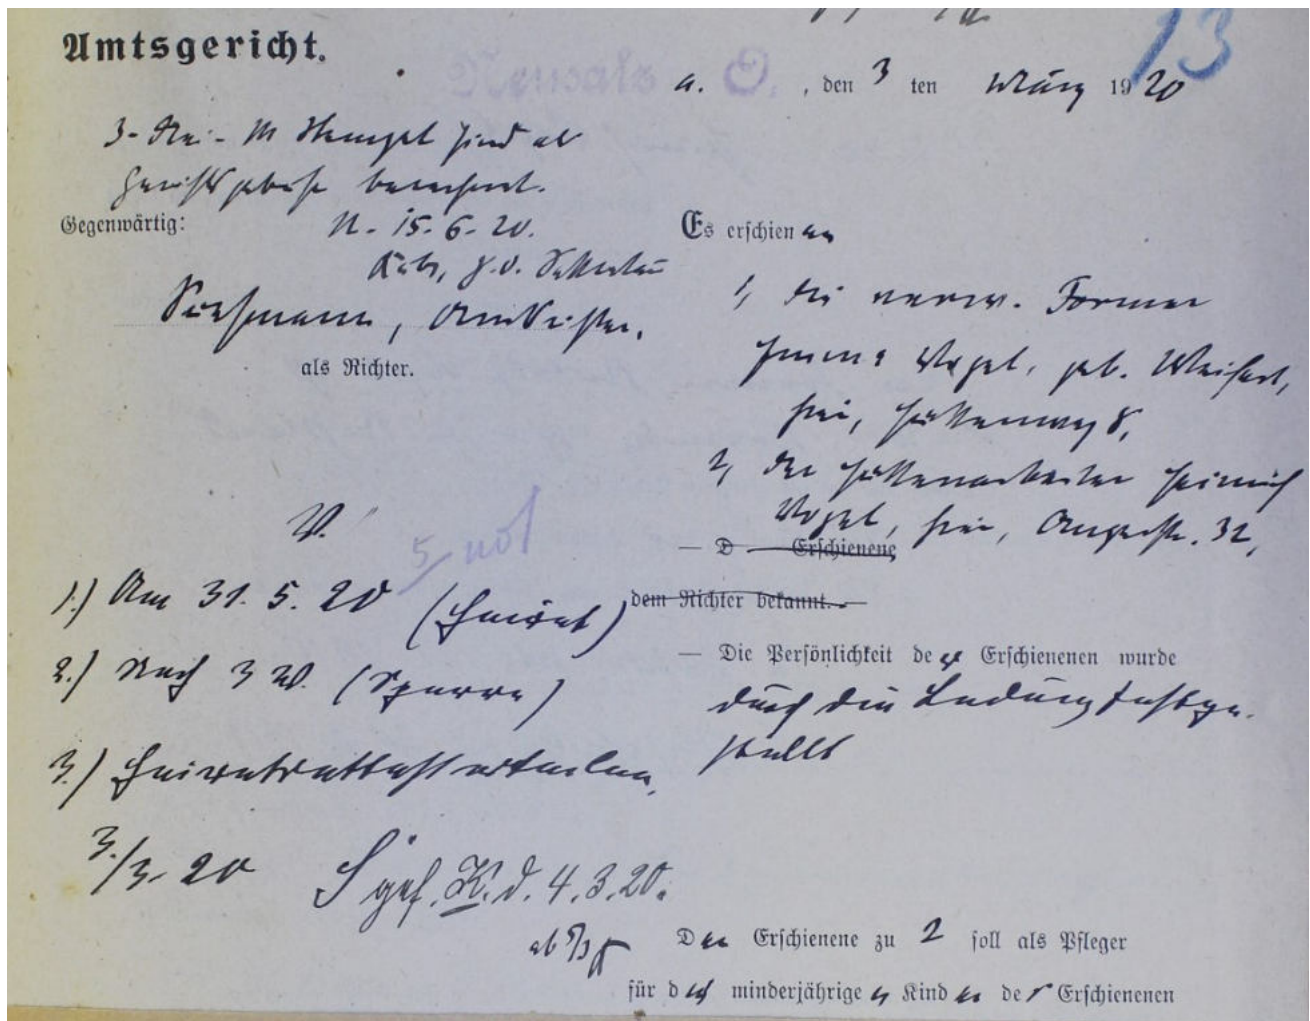 13
Amtsgericht.
Neusalz a. O., den 3 ten März 1920
3 M Stempel sind als
Gerichtsgebühr berechnet.
N. 15. 6. 20.
Gegenwärtig:
Amtsrichter,
als Richter.
V.
1.) Am 31. 5. 20 (Heirat)
2.) Nach 3 W. (Sperre)
3.) Heiratsattest erteilen,
3./3. 20
gef. K. d. 4. 3. 20.
ab 5/3
Es erschienen
1, die verw. Former
Emma Vogel, geb. Weifert,
hier, Hüttenweg 8,
2, der Hüttenarbeiter Heinrich
Vogel, hier, Auguststr. 32,
— D Erschienene
dem Richter bekannt. —
— Die Persönlichkeit der Erschienenen wurde
durch die Ladung festge-
stellt
Der Erschienene zu 2 soll als Pfleger
für d minderjährigen Kinder der Erschienenen